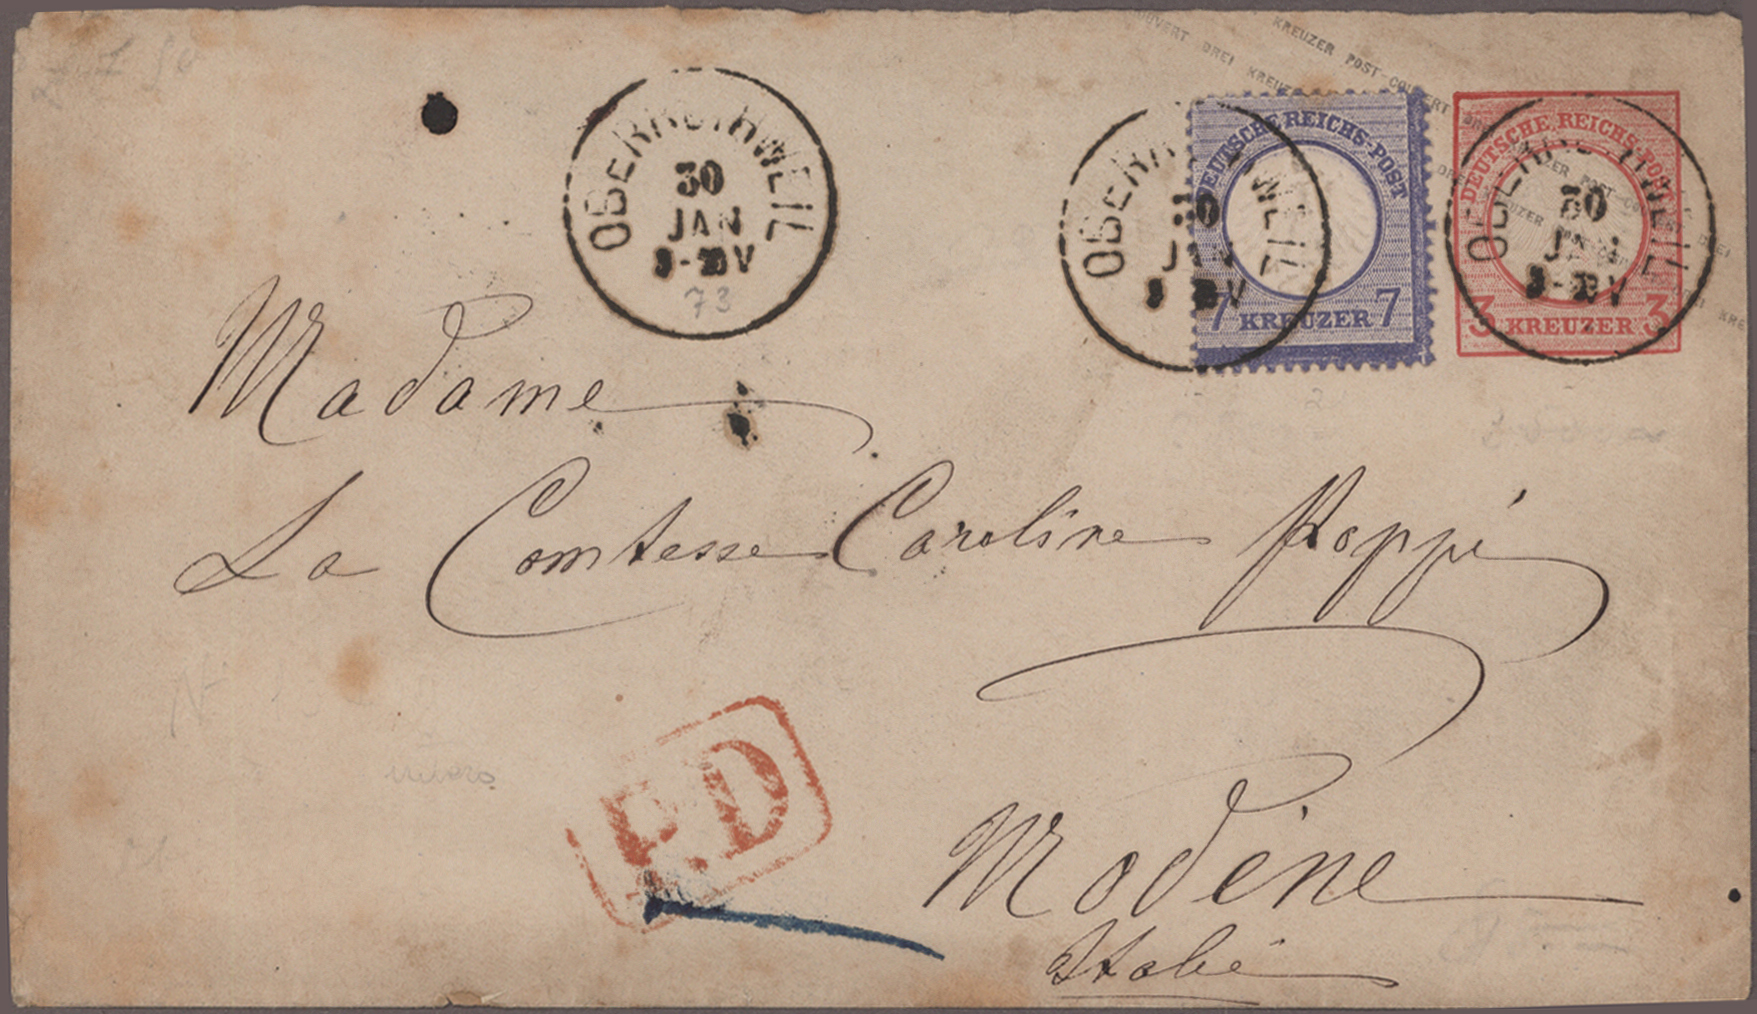 KREUZER POST-COUVERT DREI
COUVERT DREI KREUZER
OBERROTHWEIL
30
JAN
73
OBERROTHWEIL
30
JAN
DEUTSCHE REICHS-POST
7 KREUZER 7
OBERROTHWEIL
30
JAN
DEUTSCHE REICHS-POST
3 KREUZER 3
Madame
La Comtesse Caroline
P.D
Modène
Italie